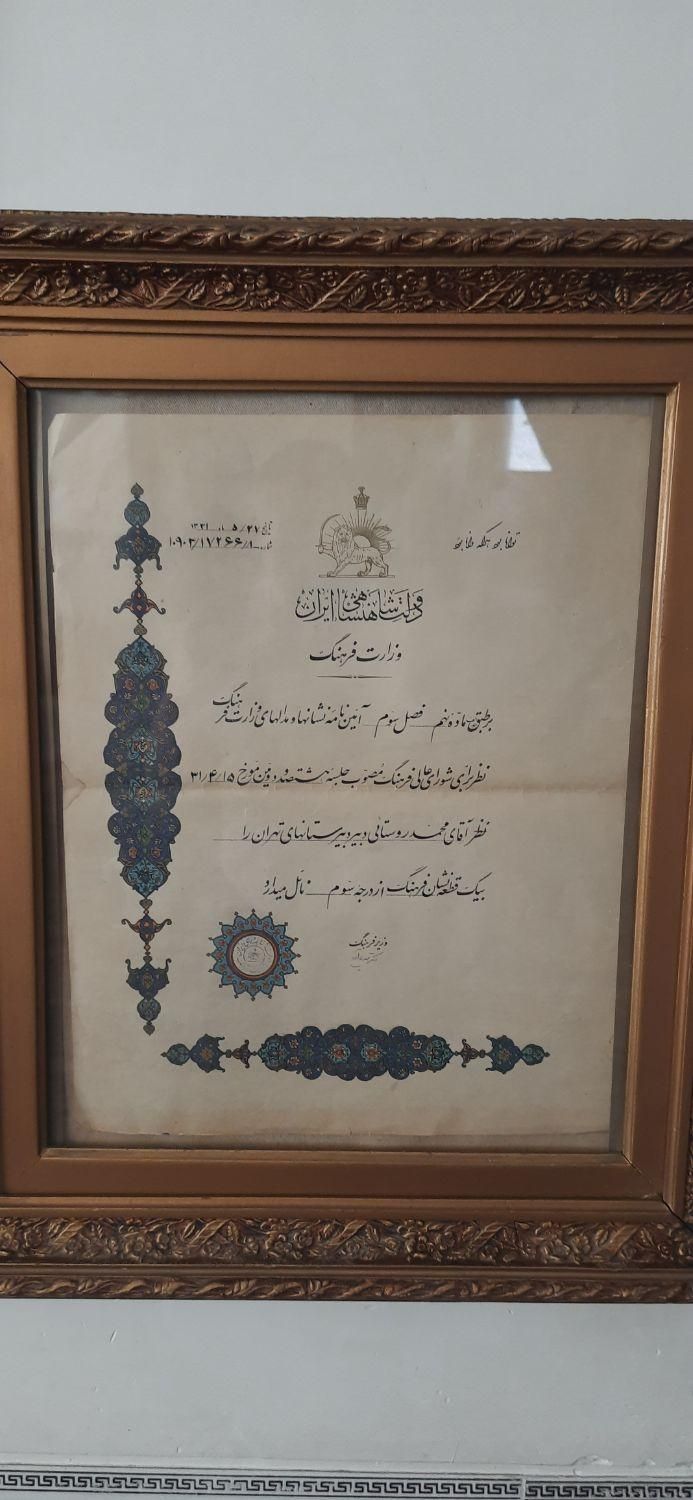 تاریخ ۲۷/ ۵ ماه ۱۳۳۱
شماره ۱۰۹۰۲/۱۷۲۶۶/۸
دولت شاهنشاهی ایران
وزارت فرهنگ
بر طبق ماده نهم فصل سوم آئین نامه نشانها و مدالهای وزارت فرهنگ
نظر برای شورای عالی فرهنگ مصوب جلسه هشتصد و دومین مورخ ۳۱/۴/۱۵
نظر آقای محمد روستائی دبیر دبیرستانهای تهران را
بیک قطعه نشان فرهنگ از درجه سوم نائل میدارد
وزیر فرهنگ